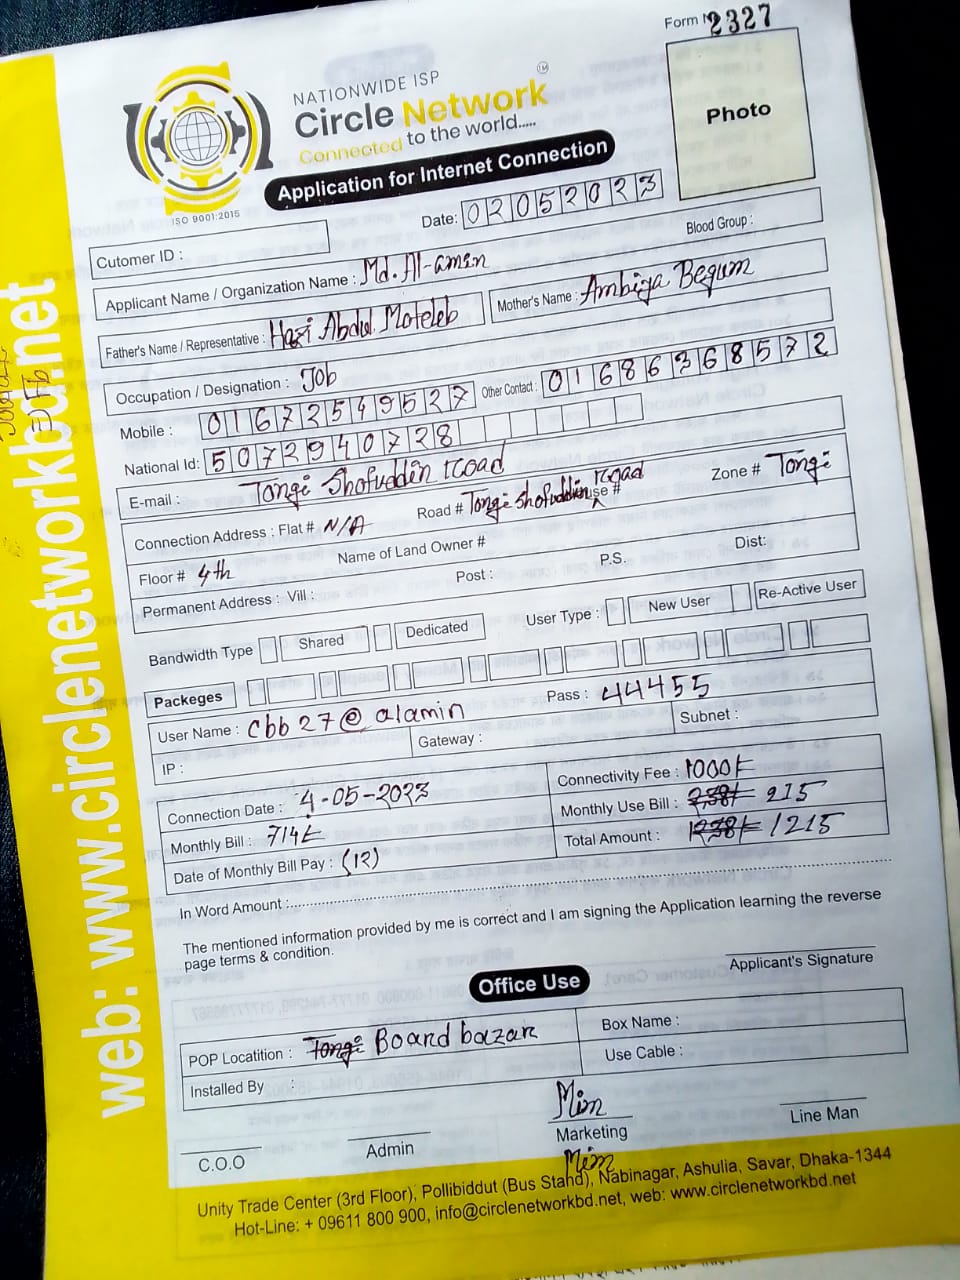 Form N 2327
NATIONWIDE ISP
Circle Network TM
Connected to the world.....
ISO 9001:2015
Application for Internet Connection
Photo
Date: 02052023
Cutomer ID :
Blood Group :
Applicant Name / Organization Name : Md. Al-amin
Father's Name / Representative : Hazi Abdul Moteleb Mother's Name : Ambiya Begum
Occupation / Designation : Job
Mobile : 01672549527 Other Contact : 01686368572
National Id: 5072940728
E-mail : Tongi Shofuddin Road
Connection Address : Flat # N/A Road # Tongi Shofuddin Road use # Zone # Tongi
Floor # 4th Name of Land Owner #
Permanent Address : Vill : Post : P.S. Dist:
Bandwidth Type Shared Dedicated User Type : New User Re-Active User
Packeges
User Name : cbb27@alamin Pass : 44455
IP : Gateway : Subnet :
Connection Date : 4-05-2023 Connectivity Fee : 1000
Monthly Bill : 714 Monthly Use Bill : 238 215
Date of Monthly Bill Pay : (12) Total Amount : 1238 1215
In Word Amount :
The mentioned information provided by me is correct and I am signing the Application learning the reverse
page terms & condition.
Applicant's Signature
Office Use
POP Locatition : Tongi Board bazar Box Name :
Installed By : Use Cable :
Mim
C.O.O Admin Marketing Line Man
Mim
Unity Trade Center (3rd Floor), Pollibiddut (Bus Stand), Nabinagar, Ashulia, Savar, Dhaka-1344
Hot-Line: + 09611 800 900, info@circlenetworkbd.net, web: www.circlenetworkbd.net
web: www.circlenetworkbd.net